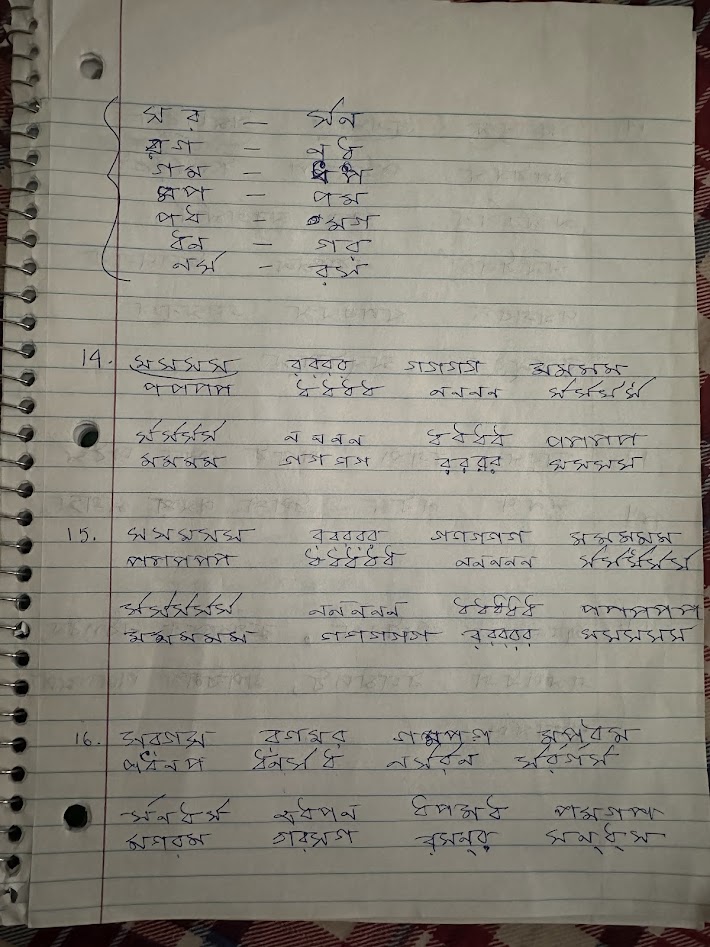 স র - র্সন
রগ - নধ
গম - ধপ
মপ - পম
পধ - মগ
ধন - গর
নর্স - রস
14. সসসস রররর গগগগ মমমম
পপপপ ধধধধ নননন র্সর্সর্সর্স
র্সর্সর্সর্স নননন ধধধধ পপপপ
মমমম গগগগ রররর সসসস
15. সসসসস ররররর গগগগগ মমমমম
পপপপপ ধধধধধ ননননন র্সর্সর্সর্সর্স
র্সর্সর্সর্সর্স ননননন ধধধধধ পপপপপ
মমমমম গগগগগ ররররর সসসসস
16. সরগস রগমর গমপগ মপধম
পধনপ ধনর্সধ নর্সর্রন র্সর্রর্গর্স
র্সনধর্স নধপন ধপমধ পমগপ
মগরম গরসগ রসন্র সন্ধ্স